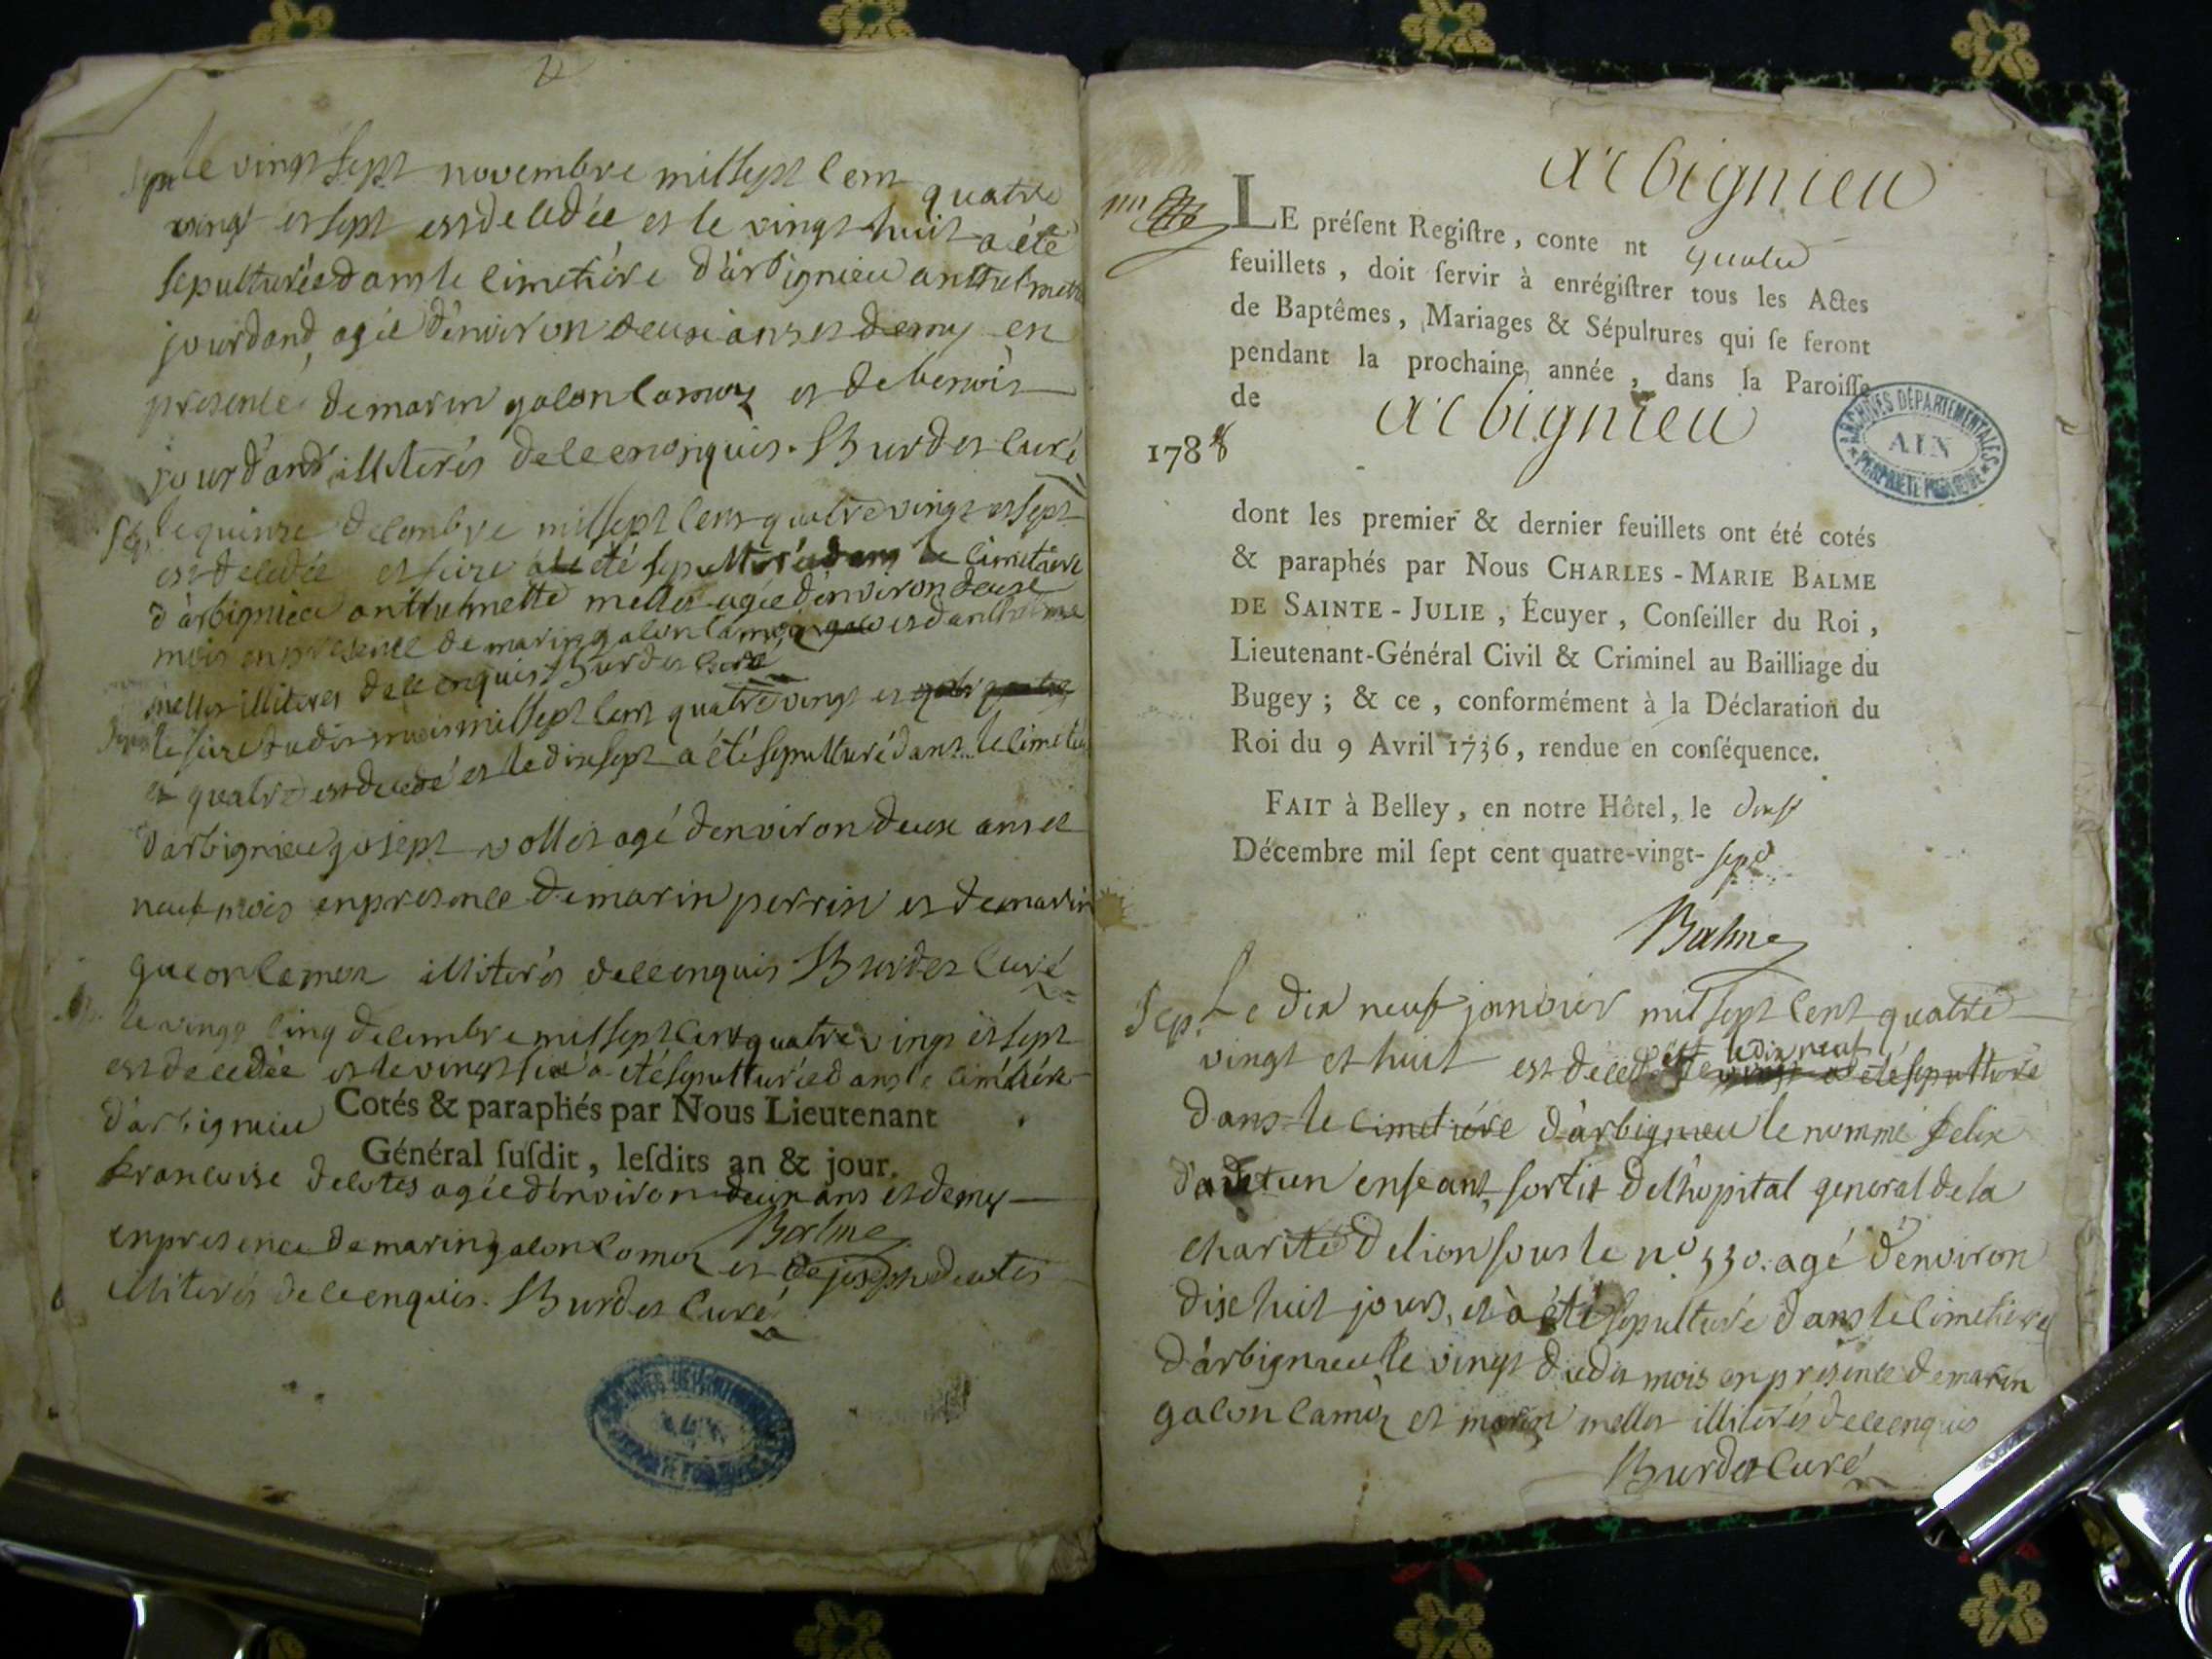 le vingt sept novembre mil sept cent quatre
vingt et sept est decedée et le vingt huit a été
sepulturée dans le cimetière d'arbignieu anthelmette
jourdand, agée d'environ deux ans et demy en
presence de marin galon camoz et de benoit
jourdand illiterés de ce enquis. Burdet curé
Sep. le quinze decembre mil sept cent quatre vingt et sept
est decedée et seize a été sepulturée dans le cimetiere
d'arbignieu anthelmette mellet agée d'environ deuze
mois en presence de marin galon camoz et d'anthelme
mellet illiteres de ce enquis Burdet curé
le seize dudit mois mil sept cent quatre vingt et
et quatre est decedé et le dix sept a été sepulturé dans le cimetie
d'arbignieu josept vollet agé d'environ deux ans et
neuf mois en presence de marin perrin et de marin
galon camoz illiterés de ce enquis Burdet curé
le vingt cinq decembre mil sept cent quatre vingt et sept
est decedée et le vingt six a été sepulturée dans le cimétiére
d'arbignieu
Cotés & paraphés par Nous Lieutenant
Général suſdit, leſdits an & jour.
francoise decotes agée d'environ deux ans et demy
Balme
en presence de marin galon camoz et de joseph decotes
illiterés de ce enquis. Burdet curé
arbignieu
LE préſent Regiſtre, conte nt quatre
feuillets, doit ſervir à enrégiſtrer tous les Actes
de Baptêmes, Mariages & Sépultures qui ſe feront
pendant la prochaine année, dans la Paroiſſe
de arbignieu
1788
ARCHIVES DÉPARTEMENTALES
AIN
PROPRIÉTÉ PUBLIQUE
dont les premier & dernier feuillets ont été cotés
& paraphés par Nous CHARLES-MARIE BALME
DE SAINTE-JULIE, Écuyer, Conſeiller du Roi,
Lieutenant-Général Civil & Criminel au Bailliage du
Bugey; & ce, conformément à la Déclaration du
Roi du 9 Avril 1736, rendue en conſéquence.
FAIT à Belley, en notre Hôtel, le
Décembre mil ſept cent quatre-vingt- sept
Balme
Sep. Le dix neuf janvier mil sept cent quatre
vingt et huit est décedé le dix neuf a été sepulturé
dans le cimetiére d'arbignieu le nommé felix
enfeant, sortit de l'hopital general de la
charité de lion sous le n° 330. agé d'environ
dix huit jours, et a été sepulturé dans le cimetiere
d'arbignieu le vingt dudit mois en presence de marin
galon camoz et marin mellet illiterés de ce enquis
Burdet curé